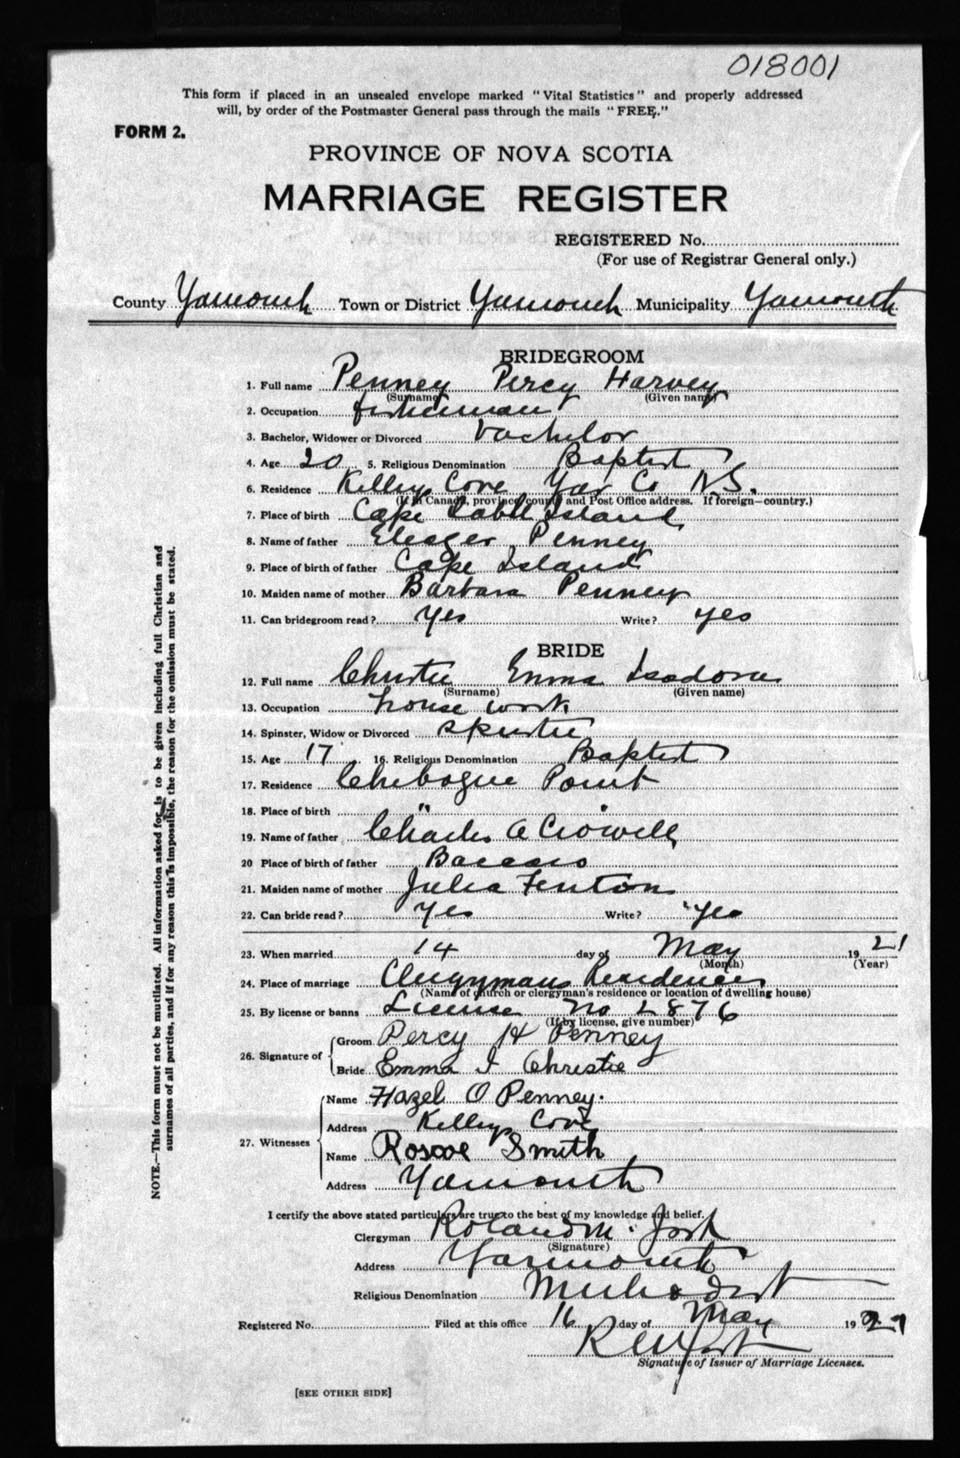 018001
This form if placed in an unsealed envelope marked "Vital Statistics" and properly addressed
will, by order of the Postmaster General pass through the mails "FREE."
FORM 2.
PROVINCE OF NOVA SCOTIA
MARRIAGE REGISTER
REGISTERED No.
(For use of Registrar General only.)
County Yarmouth Town or District Yarmouth Municipality Yarmouth
BRIDEGROOM
1. Full name Penney Percy Harvey
(Surname) (Given name)
2. Occupation fisherman
3. Bachelor, Widower or Divorced bachelor
4. Age 20 5. Religious Denomination Baptist
6. Residence Kelleys Cove Yar Co N.S.
(If in Canada, province, county and Post Office address. If foreign—country.)
7. Place of birth Cape Sable Island
8. Name of father Eleazer Penney
9. Place of birth of father Cape Island
10. Maiden name of mother Barbara Penney
11. Can bridegroom read? Yes Write? yes
BRIDE
12. Full name Christie Emma Isadore
(Surname) (Given name)
13. Occupation house work
14. Spinster, Widow or Divorced spinster
15. Age 17 16. Religious Denomination Baptist
17. Residence Chebogue Point
18. Place of birth " "
19. Name of father Charles A Crowell
20 Place of birth of father Baccaro
21. Maiden name of mother Julia Fenton
22. Can bride read? Yes Write? Yes
23. When married 14 day of May 1921
(Month) (Year)
24. Place of marriage Clergymans Residence
(Name of church or clergyman's residence or location of dwelling house)
25. By license or banns License No 2876
(If by license, give number)
26. Signature of Groom Percy H Penney
Bride Emma I Christie
27. Witnesses
Name Hazel O Penney.
Address Kelleys Cove
Name Roscoe Smith
Address Yarmouth
I certify the above stated particulars are true to the best of my knowledge and belief.
Clergyman Roland M.
(Signature)
Address Yarmouth
Religious Denomination Methodist
Registered No. Filed at this office 16 day of May 19
Signature of Issuer of Marriage Licenses.
[SEE OTHER SIDE]
NOTE.—This form must not be mutilated. All information asked for is to be given including full Christian and
surnames of all parties, and if for any reason this is impossible, the reason for the omission must be stated.